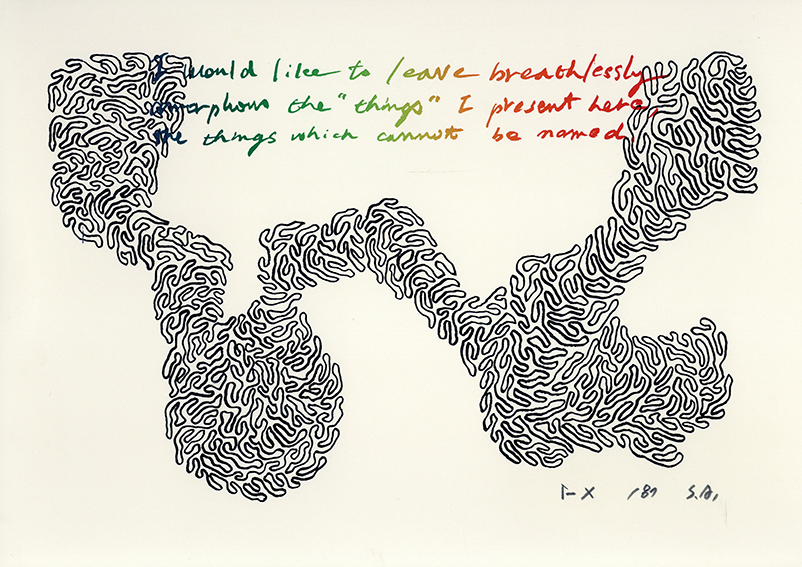 I would like to leave breathlessly
amorphous the "things" I present here,
the things which cannot be named.
'81 S.A.